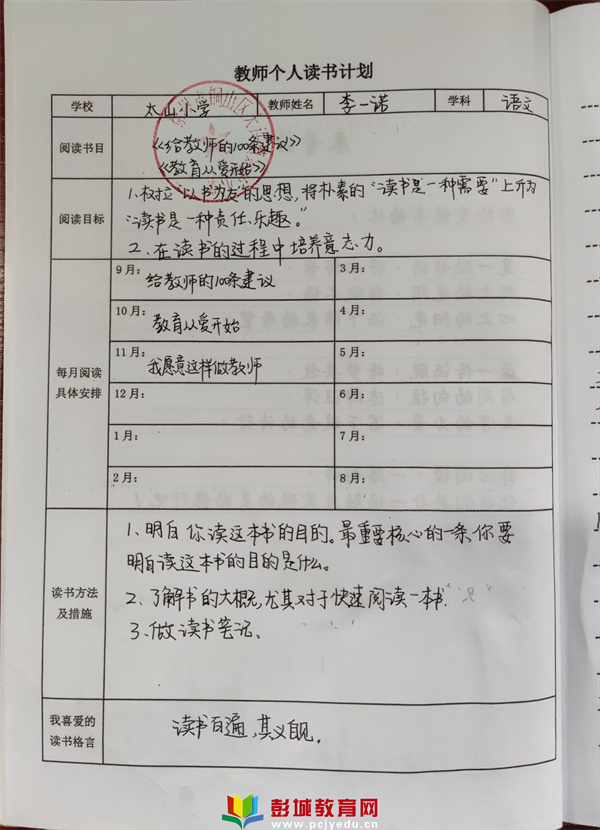 教师个人读书计划
学校 太山小学 教师姓名 李一诺 学科 语文
阅读书目 《给教师的100条建议》
《教育从爱开始》
阅读目标 1、树立“以书为友”的思想，将朴素的“读书是一种需要”上升为
“读书是一种责任、乐趣。”
2、在读书的过程中培养意志力。
每月阅读
具体安排
9月：给教师的100条建议 3月：
10月：教育从爱开始 4月：
11月：我愿意这样做教师 5月：
12月： 6月：
1月： 7月：
2月： 8月：
读书方法
及措施
1、明白你读这本书的目的。最重要核心的一条，你要
明白读这本书的目的是什么。
2、了解书的大概，尤其对于快速阅读一本书。
3、做读书笔记。
我喜爱的
读书格言
读书百遍，其义自见。
彭城教育网
www.pcjyedu.cn